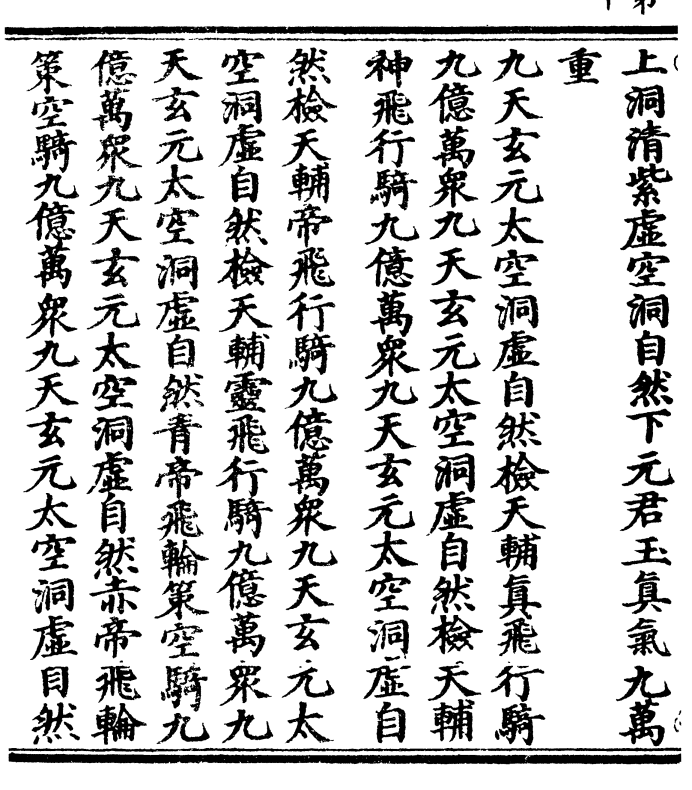 上洞清紫虛空洞自然下元君玉眞氣九萬
重
九天玄元太空洞虛自然檢天輔眞飛行騎
九億萬眾九天玄元太空洞虛自然檢天輔
神飛行騎九億萬眾九天玄元太空洞虛自
然檢天輔帝飛行騎九億萬眾九天玄元太
空洞虛自然檢天輔靈飛行騎九億萬眾九
天玄元太空洞虛自然青帝飛輪策空騎九
億萬眾九天玄元太空洞虛自然赤帝飛輪
策空騎九億萬眾九天玄元太空洞虛自然